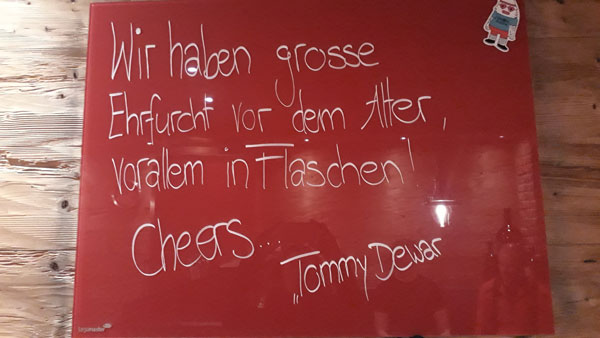 Wir haben grosse
Ehrfurcht vor dem Alter,
vorallem in Flaschen!
Cheers...
„Tommy Dewar
legamaster